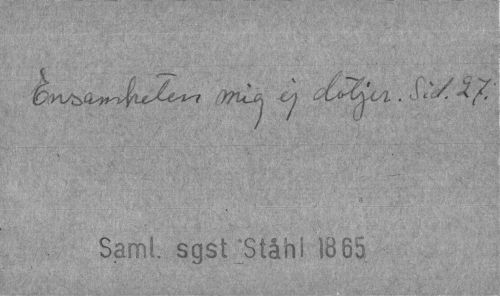 Ensamheten mig ej dötjer. Sid. 27.
Saml. sgst Ståhl 1865